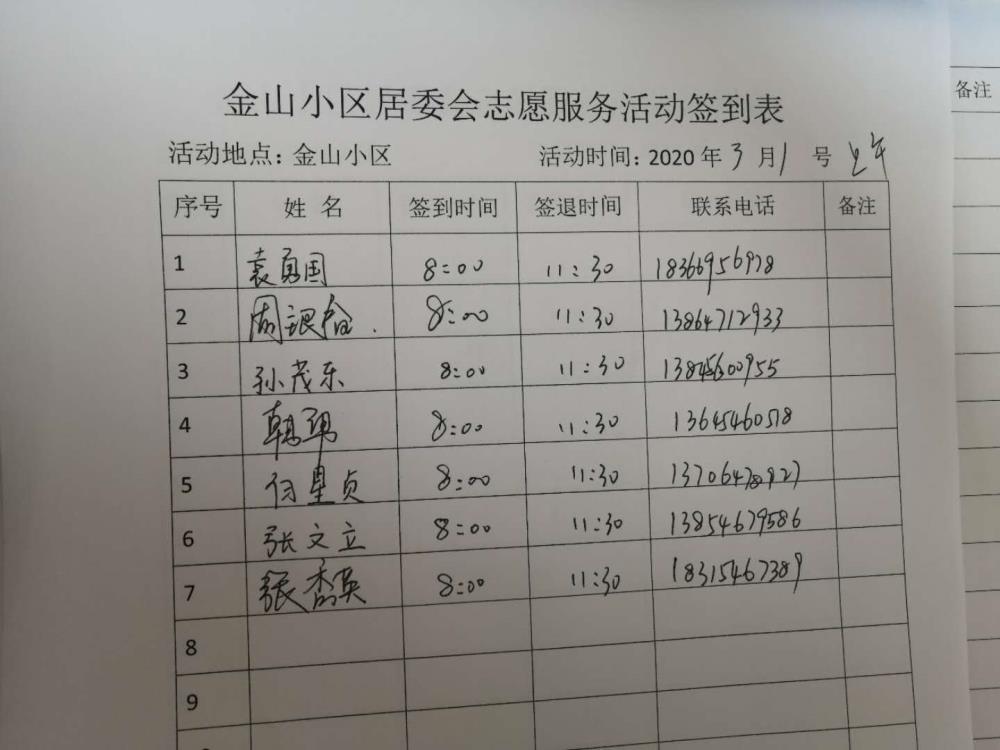 金山小区居委会志愿服务活动签到表
活动地点：金山小区 活动时间：2020年3月1号上午
序号 姓名 签到时间 签退时间 联系电话 备注
1 袁勇国 8:00 11:30 18366956978
2 周银 8:00 11:30 13864712933
3 孙茂东 8:00 11:30 13845600955
4 韩 8:00 11:30 13645460518
5 星贞 8:00 11:30 13706478927
6 张文立 8:00 11:30 13854679586
7 张香英 8:00 11:30 18315467389
8
9
备注